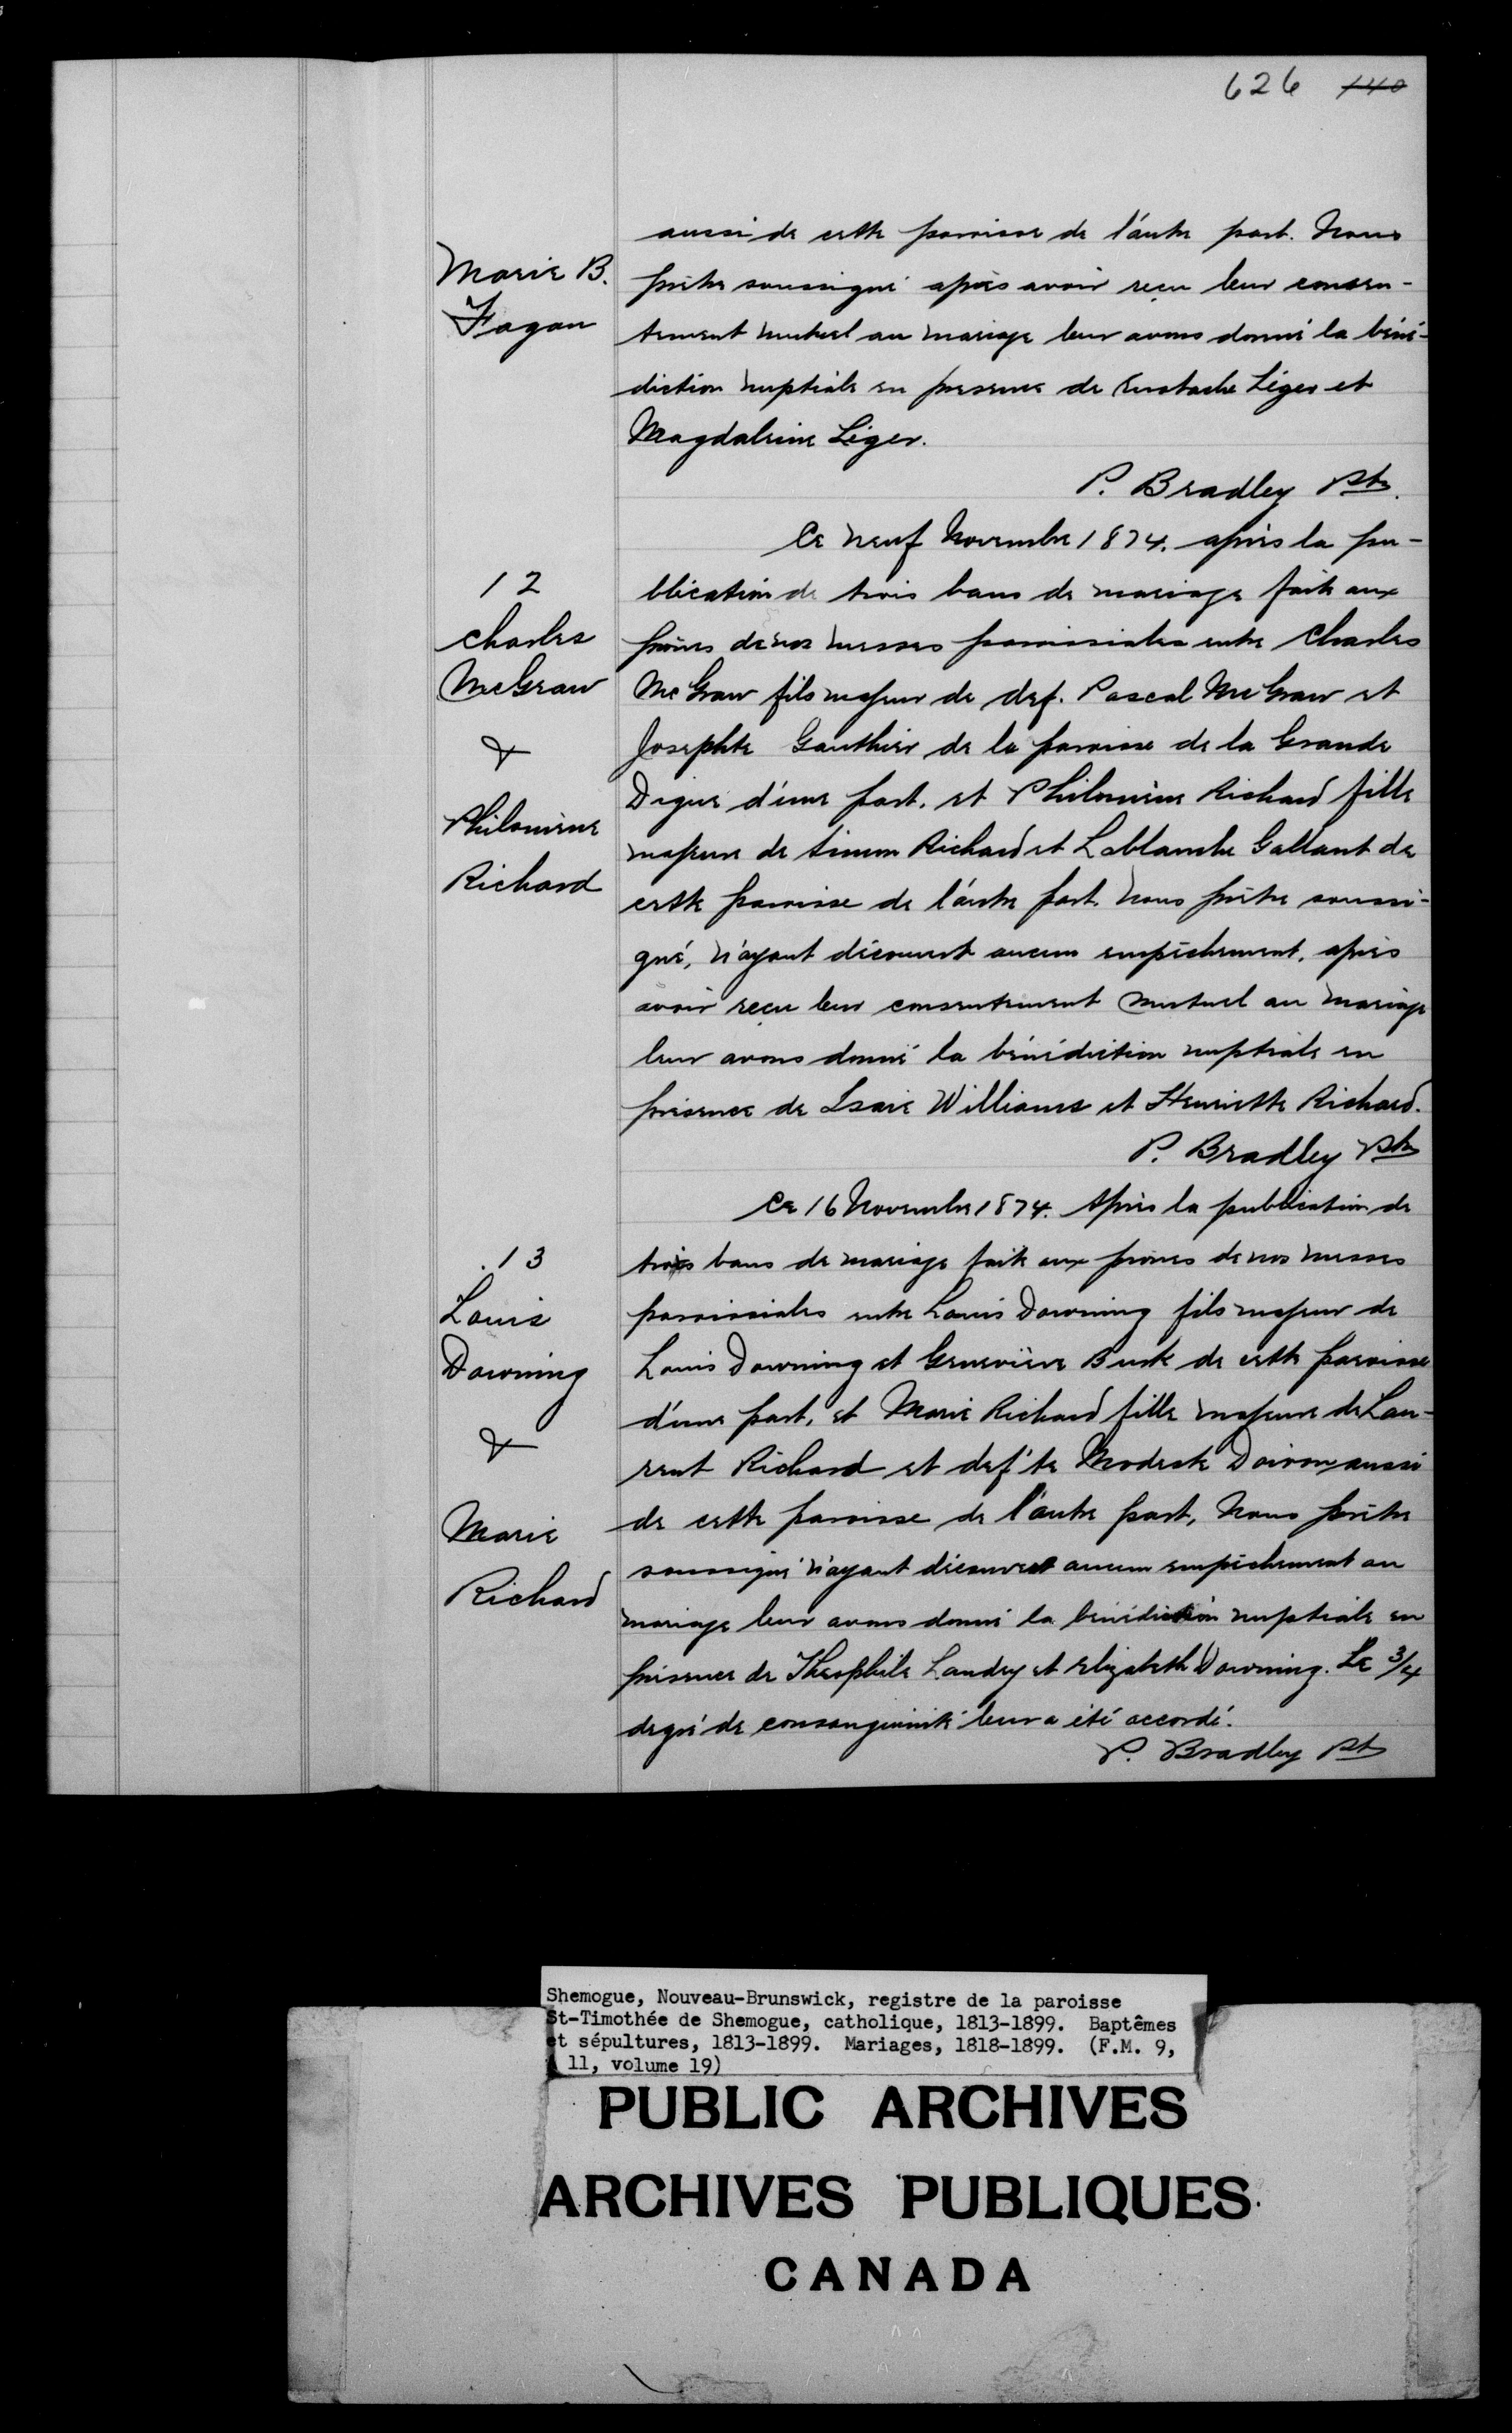 626 140
aussi de cette paroisse de l'autre part. Nous
Marie B.
Fagan
prêtre soussigné après avoir reçu leur consen-
tement mutuel au mariage leur avons donné la béné-
diction nuptiale en presence de Eustache Léger et
Magdaleine Léger.
P. Bradley Ptr.
Ce neuf Novembre 1874. après la pu-
12
Charles
McGraw
&
Philomène
Richard
blication de trois bans de mariage faite aux
prônes de nos messes paroissiales entre Charles
McGraw fils majeur de def. Pascal McGraw et
Josephte Gauthier de la paroisse de la Grande
Digue d'une part. et Philomène Richard fille
majeure de Simon Richard et Leblanche Gallant de
cette paroisse de l'autre part. Nous prêtre soussi-
gné, n'ayant découvert aucun empêchement, après
avoir reçu leur consentement mutuel au mariage
leur avons donné la bénédiction nuptiale en
présence de Isaie Williams et Henriette Richard.
P. Bradley Ptr
Ce 16 Novembre 1874. Après la publication de
13
Louis
Downing
&
Marie
Richard
trois bans de mariage faite aux prônes de nos messes
paroissiales entre Louis Downing fils majeur de
Louis Downing et Geneviève Burk de cette paroisse
d'une part, et Marie Richard fille majeure de Lau-
rent Richard et def'te Modeste Doiron aussi
de cette paroisse de l'autre part, Nous prêtre
soussigné n'ayant découvert aucun empêchement au
mariage leur avons donné la bénédiction nuptiale en
présence de Theophile Landry et Elizabeth Downing. Le 3/4
degré de consanguinité leur a été accordé.
P. Bradley Pt
Shemogue, Nouveau-Brunswick, registre de la paroisse
St-Timothée de Shemogue, catholique, 1813-1899. Baptêmes
et sépultures, 1813-1899. Mariages, 1818-1899. (F.M. 9,
11, volume 19)
PUBLIC ARCHIVES
ARCHIVES PUBLIQUES
CANADA